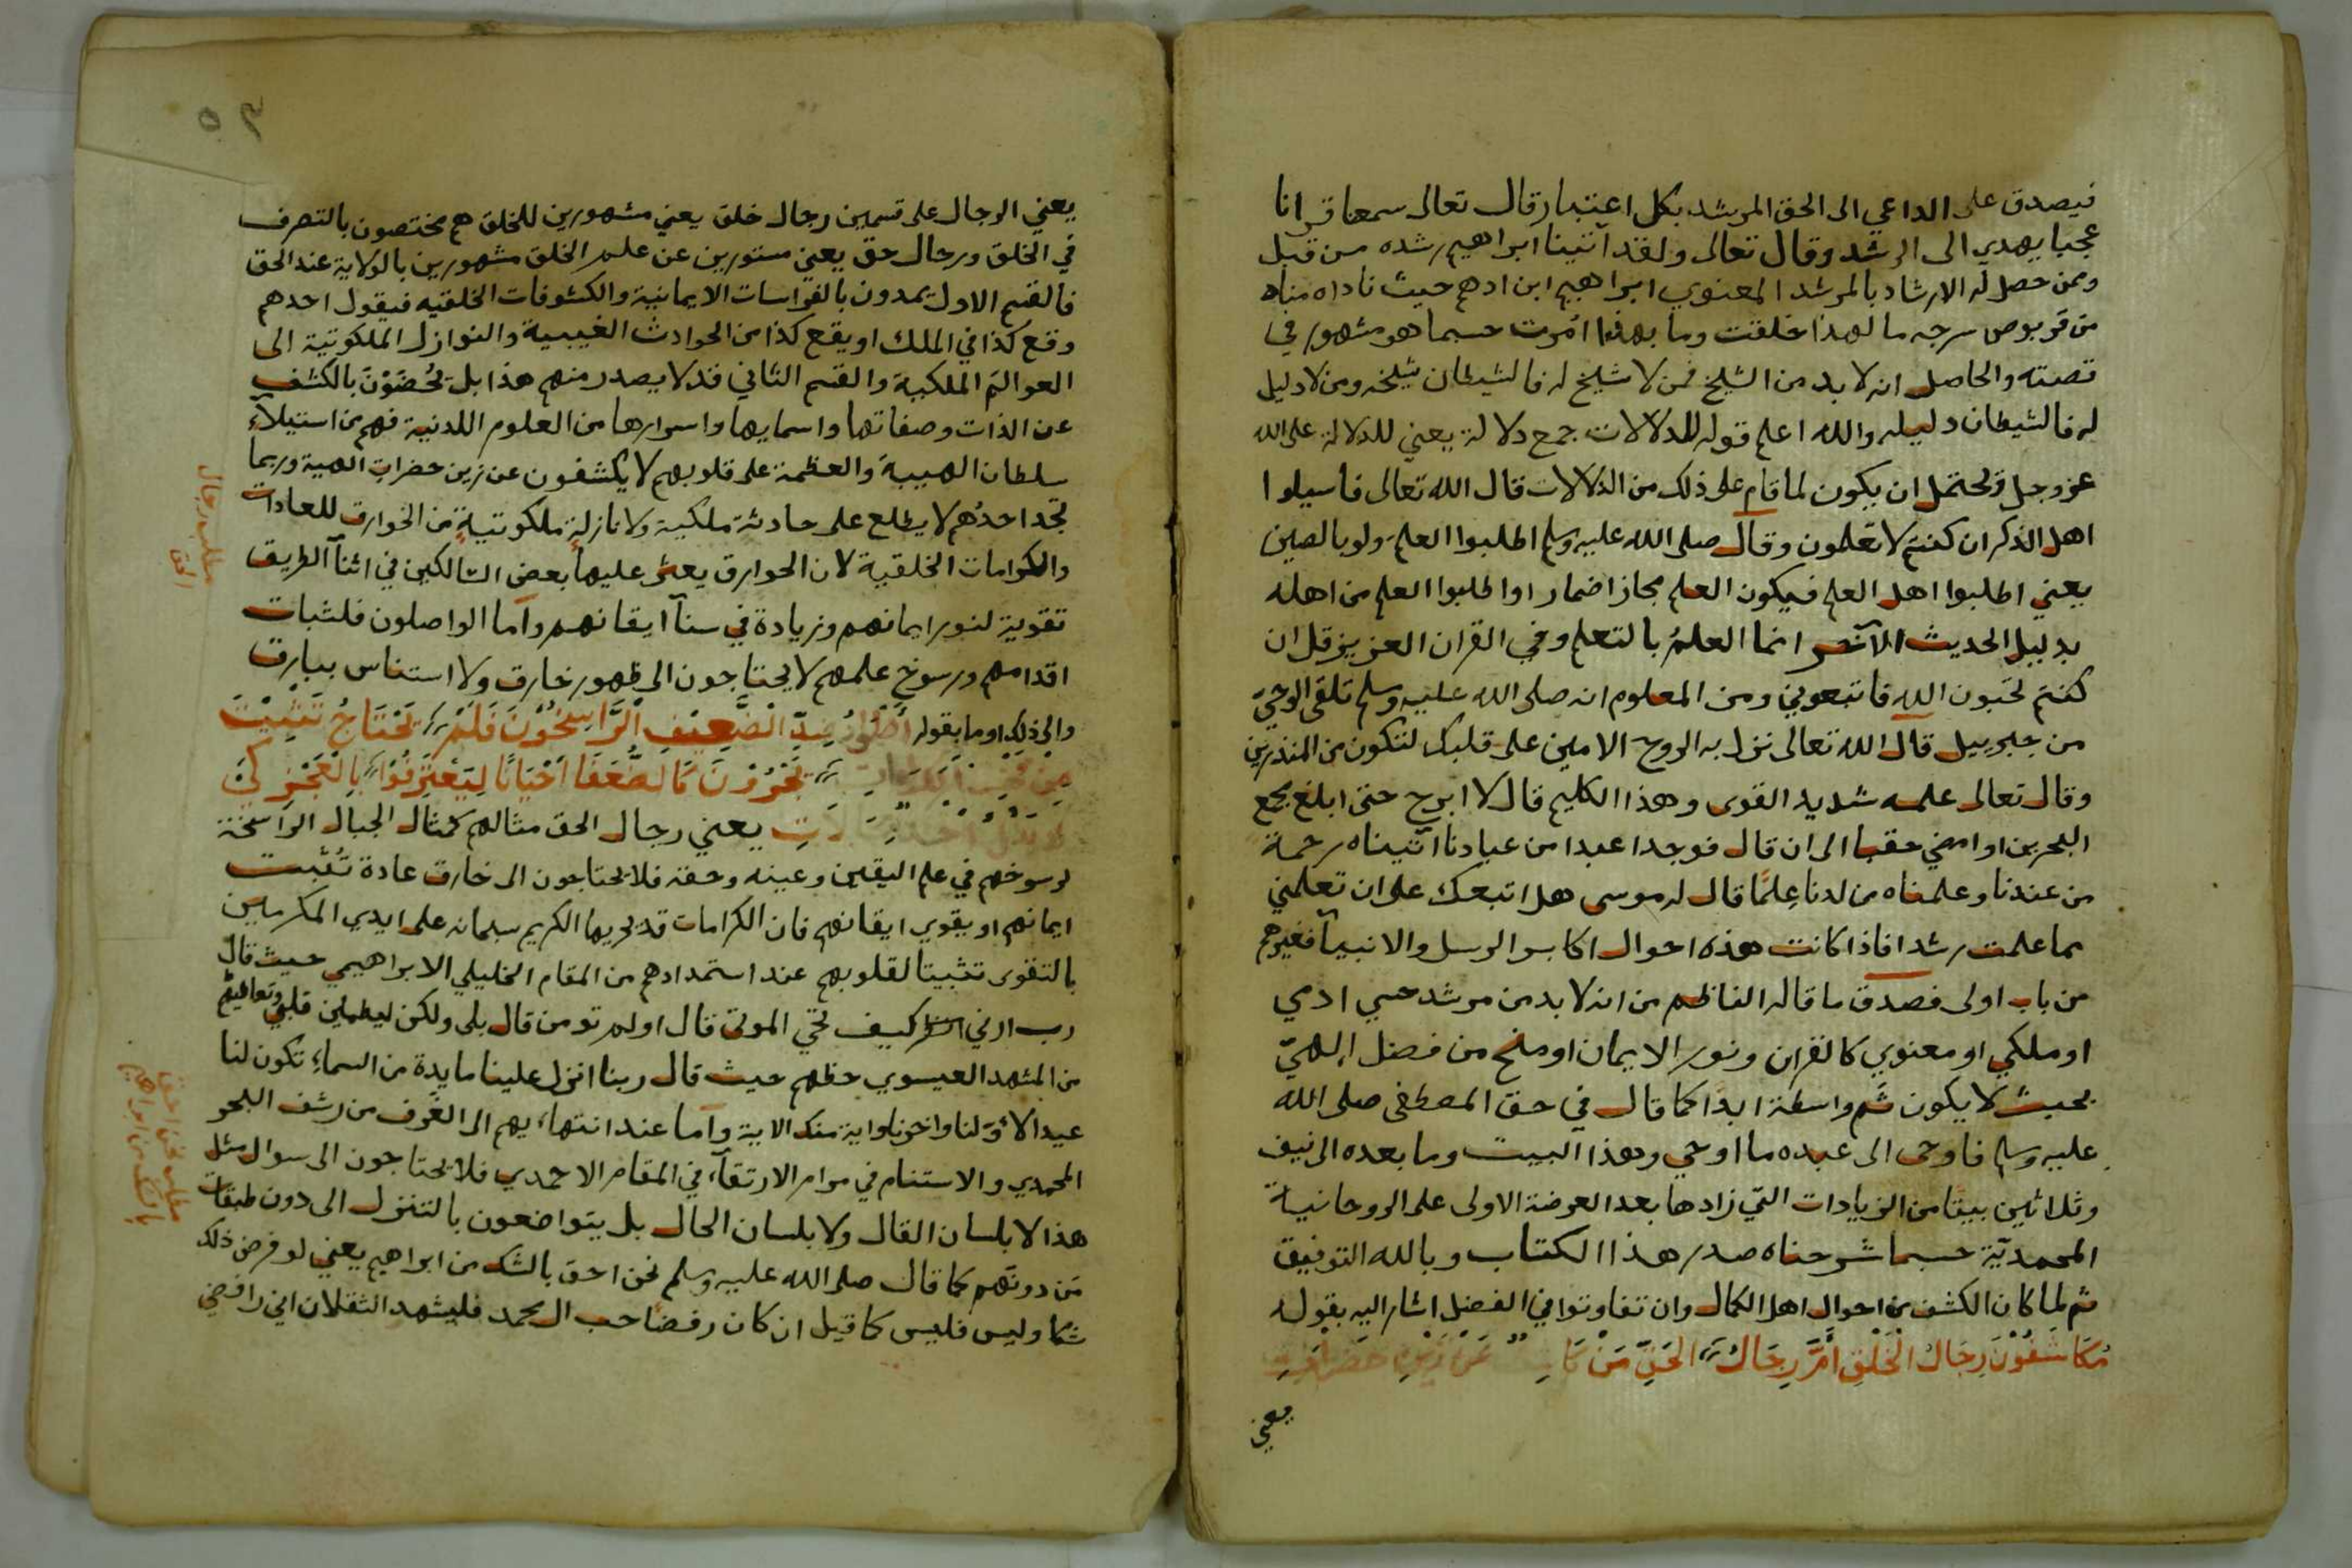 فيصدق على الداعي الى الحق المرشد بكل اعتبار قال تعالى سمعنا قرانا
عجبا يهدي الى الرشد وقال تعالى ولقد آتينا ابراهيم رشده من قبل
وممن حصل له الارشاد بالمرشد المعنوي ابراهيم ابن ادهم حيث ناداه مناد
من قربوص سرجه ما لهذا خلقت وما بهذا امرت حسبما هو مشهور في
قصته والحاصل انه لا بد من الشيخ فمن لا شيخ له فالشيطان شيخه ومن لا دليل
له فالشيطان دليله والله اعلم قوله للدلالات جمع دلالة يعني للدلالة على الله
عز وجل ويحتمل ان يكون لما قام على ذلك من الدلالات قال الله تعالى فاسيلوا
اهل الذكر ان كنتم لا تعلمون وقال صلى الله عليه وسلم اطلبوا العلم ولو بالصين
يعني اطلبوا اهل العلم فيكون العلم مجاز اضمار او اطلبوا العلم من اهله
بدليل الحديث الآخر انما العلمُ بالتعلم وفي القران العزيز قل ان
كنتم تحبون الله فاتبعوني ومن المعلوم انه صلى الله عليه وسلم تلقى الوحيَ
من جبرييل قال الله تعالى نزل به الروح الامين على قلبك لتكون من المنذرين
وقال تعالى علمه شديد القوى وهذا الكليم قال لا ابرح حتى ابلغ مجمع
البحرين او امضي حقبا الى ان قال فوجدا عبدا من عبادنا آتيناه رحمة
من عندنا وعلمناه من لدنا عِلمًا قال له موسى هل اتبعك على ان تعلمني
مما علمت رشدا فاذا كانت هذه احوال اكابر الرسل والانبيآ فغيرهم
من باب اولى فصدق ما قاله الناظم من انه لا بد من مرشد حسي ادمي
او ملكي او معنوي كالقران ونور الايمان او منح من فضل الهيّ
بحيث لا يكون ثَم واسطة ابدا كما قال في حق المصطفى صلى الله
عليه وسلم فاوحى الى عبده ما اوحي وهذا البيت وما بعده الى نيف
وثلاثين بيتا من الزيادات التي زادها بعد العرضة الاولى على الروحانية
المحمديّة حسبما شرحناه صدر هذا الكتاب وبالله التوفيق
ثم لما كان الكشف من احوال اهل الكمال وان تفاوتوا في الفضل اشار اليه بقوله
مُكَاشَفُوْنَ رِجَالُ الْخَلْقِ أَمَّ رِجَالُ الحَقِّ مَنْ عَنْ زَيْنِ حَضَرَاتِ
يعني
٥٣
يعني الرجال على قسمين رجال خلق يعني مشهورين للخلق هم مختصون بالتصرف
في الخلق ورجال حق يعني مستورين عن علم الخلق مشهورين بالولاية عند الحق
فالقسم الاول يمدون بالفراسات الايمانية والكشوفات الخلقيه فيقول احدهم
وقع كذا في الملك او يقع كذا من الحوادث الغيبية والنوازل الملكوتية الى
العوالم الملكية والقسم الثاني قد لا يصدر منهم هذا بل يُحْضَوْنَ بالكشف
عن الذات وصفاتها واسمايها واسرارها من العلوم اللدنية فهم من استيلآء
سلطان الهيبة والعظمة على قلوبهم لا يكشفون عن زين حضرات الهية وربما
تجد احدُهم لا يطلع على حادثة ملكية ولا نازلةٍ ملكوتيةٍ من الخوارق للعادات
والكرامات الخلقية لان الخوارق يعثر عليها بعض السالكين في اثنآ الطريق
تقوية لنور ايمانهم وزيادة في سنآ ايقانهم واما الواصلون فلثبات
اقدامهم ورسوخ علمهم لا يحتاجون الى ظهور خارق ولا استناس ببارق
والى ذلك اوما بقوله الرَّاسِخُوْنَ فَلَمْ تَحْتَاجُ تَثْبِيْتَ
أَحْيَانًا لِيَعْتَرِفُوْا بِالعَجْزِ كَيْ
يعني رجال الحق مثالهم كمثال الجبال الراسخة
لرسوخهم في علم اليقين وعينه وحقه فلا يحتاجون الى خارق عادة تُثبت
ايمانهم او يقوي ايقانهم فان الكرامات قد يجريها الكريم سبحانه على ايدي المكرمين
بالتقوى تثبيتا لقلوبهم عند استمدادهم من المقام الخليلي الابراهيمي حيث قال
رب ارني انظر كيف تحي الموتى قال اولم تومن قال بلى ولكن ليطمين قلبي
من المشهد العيسوي حظهم حيث قال ربنا انزل علينا مايدة من السماء تكون لنا
عيد الاوّلنا واخرنا واية منك الاية واما عند انتهاء يهم الى الغَرف من رشف البحر
المحمدي والاستنام في مرام الارتقآء في المقام الاحمدي فلا يحتاجون الى سوال مثل
هذا لا بلسان القال ولا بلسان الحال بل يتواضعون بالتنزل الى دون طبقات
مَن دونهم كما قال صلى الله عليه وسلم نحن احق بالشك من ابراهيم يعني لو فرض ذلك
شكا وليس فليس كما قيل ان كان رفضا حب ال محمد فليشهد الثقلان اني رافضي
مطلب رجال
الحق
مطلب نحن احق
بالشك من ابراهيم